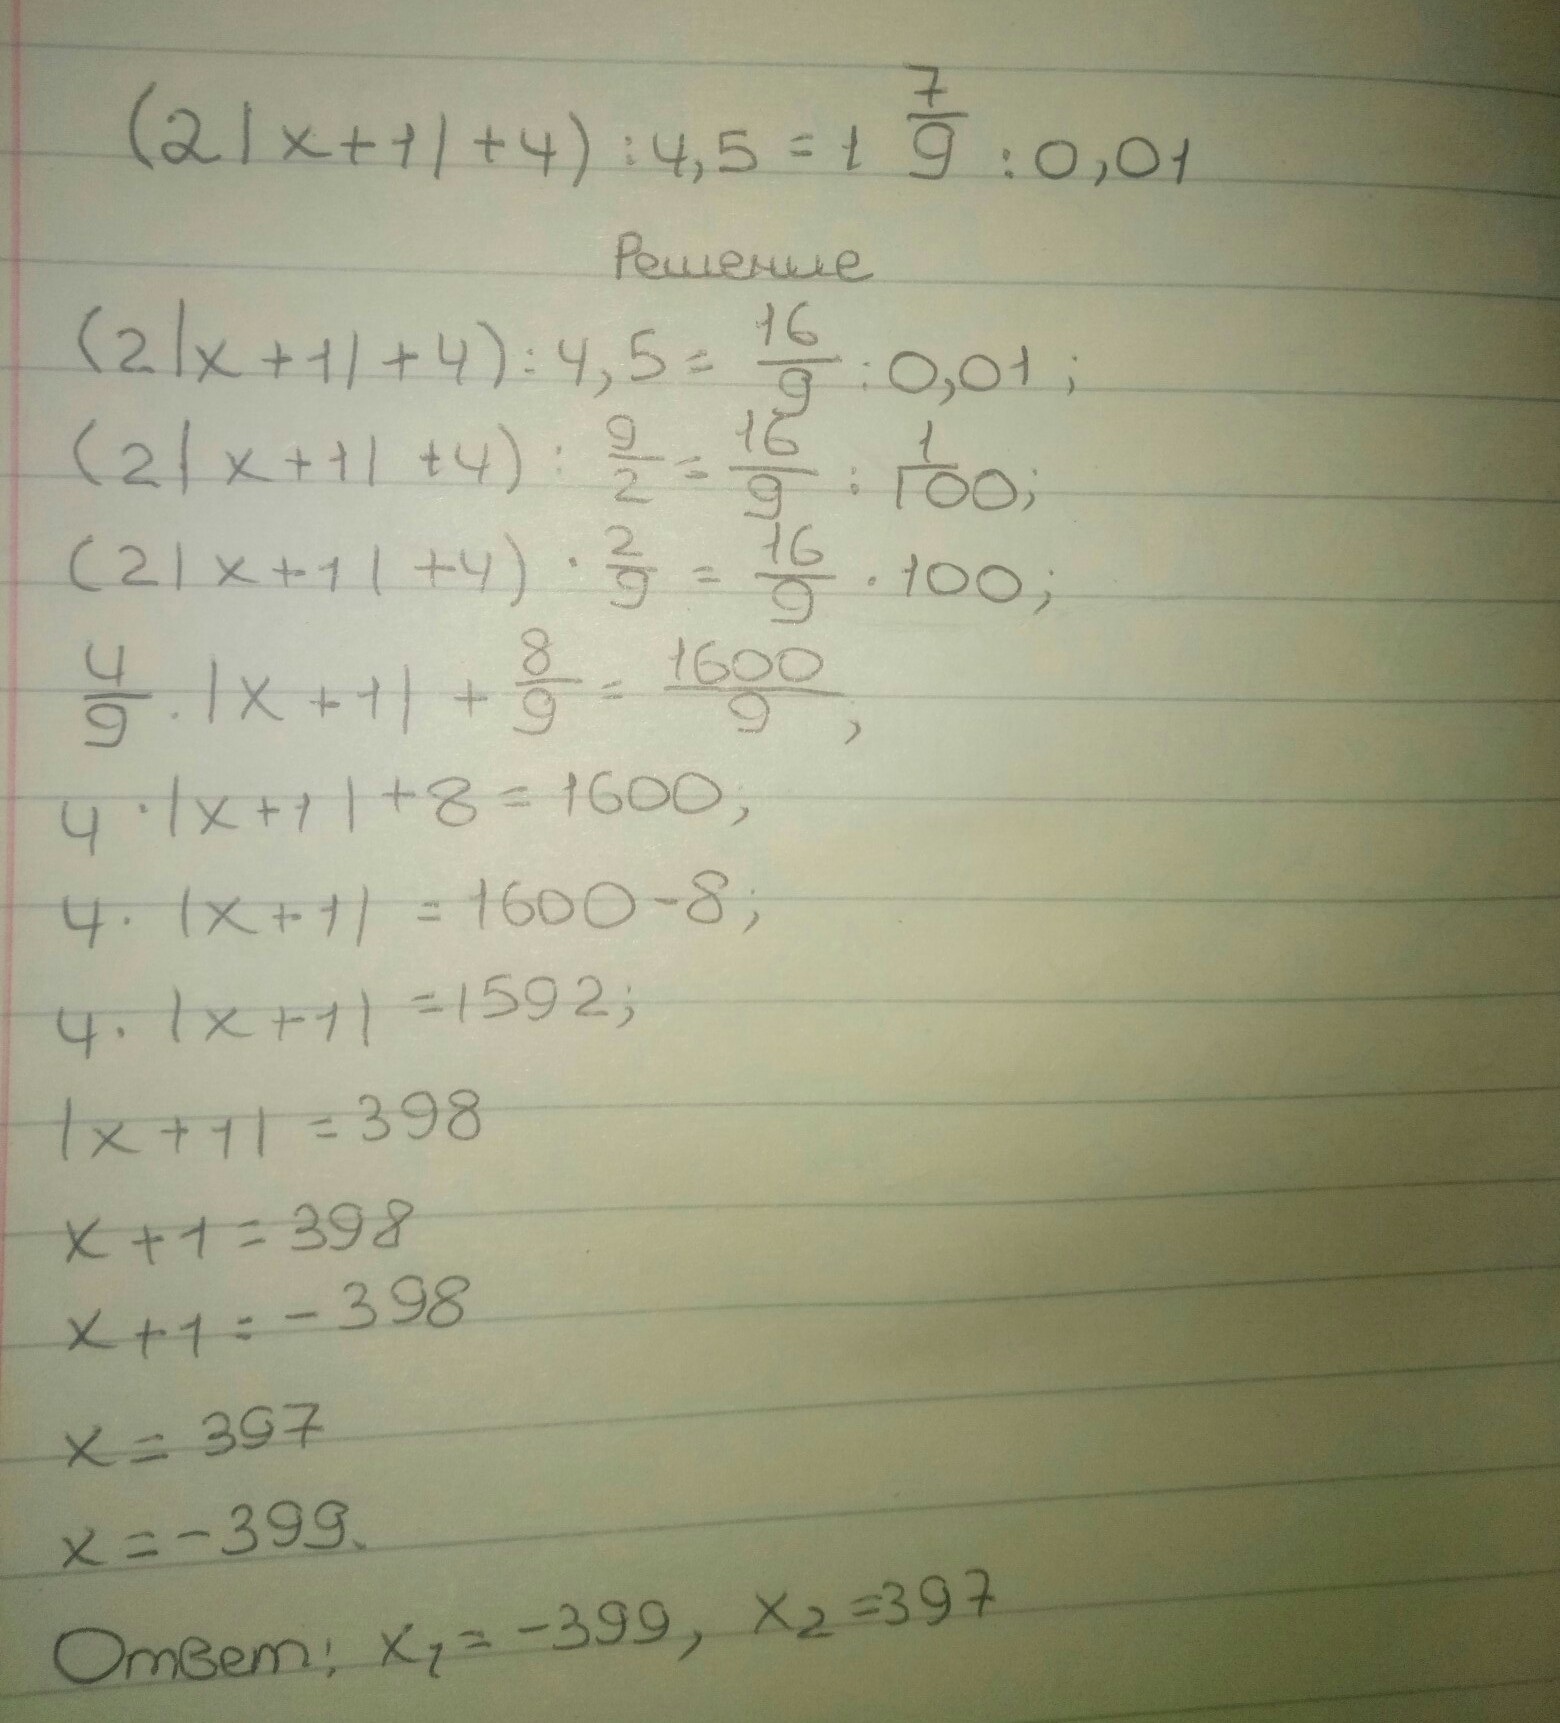 (2|x+1|+4):4,5=1 7/9 :0,01
Решение
(2|x+1|+4):4,5= 16/9 :0,01;
(2|x+1|+4): 9/2 = 16/9 : 1/100;
(2|x+1|+4) · 2/9 = 16/9 · 100;
4/9 · |x+1| + 8/9 = 1600/9;
4·|x+1|+8=1600;
4·|x+1|=1600-8;
4·|x+1|=1592;
|x+1|=398
x+1=398
x+1=-398
x=397
x=-399.
Ответ: x₁=-399, x₂=397